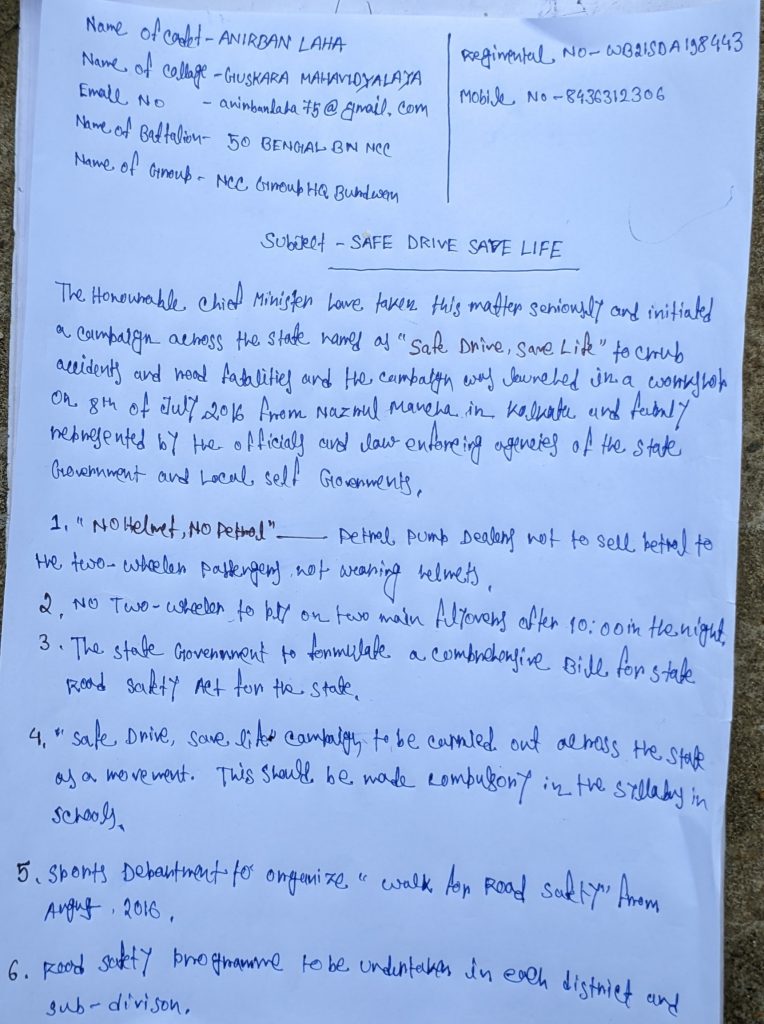 Name of cadet - ANIRBAN LAHA
Name of collage - GUSKARA MAHAVIDYALAYA
Emall No - anirbanlaha75@gmail.com
Name of Battalion - 50 BENGAL BN NCC
Name of Group - NCC Group HQ Burdwan
Regimental No - WB21SDA198443
Mobile No - 8436312306
Subject - SAFE DRIVE SAVE LIFE
The Honourable Chief Minister have taken this matter seriously and initiated
a campaign across the state named as "Safe Drive, Save Life" to crub
accidents and road fatalities and the campaign was launched in a workshop
on 8th of July 2016 from Nazrul Mancha in Kolkata and
represented by the officials and law enforcing agencies of the state
Government and Local self Governments.
1. "NO Helmet, NO Petrol" — Petrol pump Dealers not to sell petrol to
the two-wheeler passengers not wearing helmets.
2. NO Two-wheeler to ply on two main flyovers after 10:00 in the night.
3. The state Government to formulate a comprehensive Bill for state
Road Safety Act for the state.
4. "Safe Drive, save life campaign to be carried out across the state
as a movement. This should be made compulsory in the syllabus in
schools.
5. Sports Department to organize "walk for Road Safety" from
August, 2016.
6. Road safety programme to be undertaken in each district and
sub-divison.